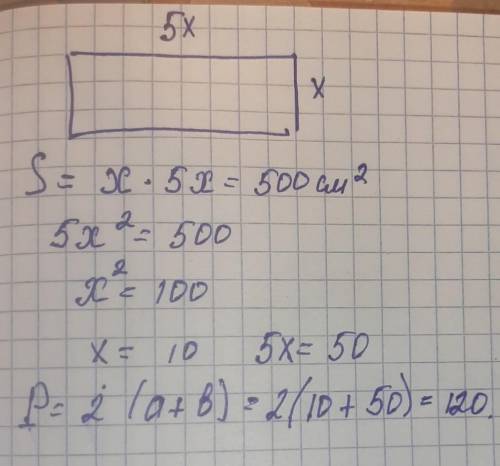 5x
x
S = x · 5x = 500 см²
5x² = 500
x² = 100
x = 10 5x = 50
P = 2 (a + b) = 2(10 + 50) = 120.